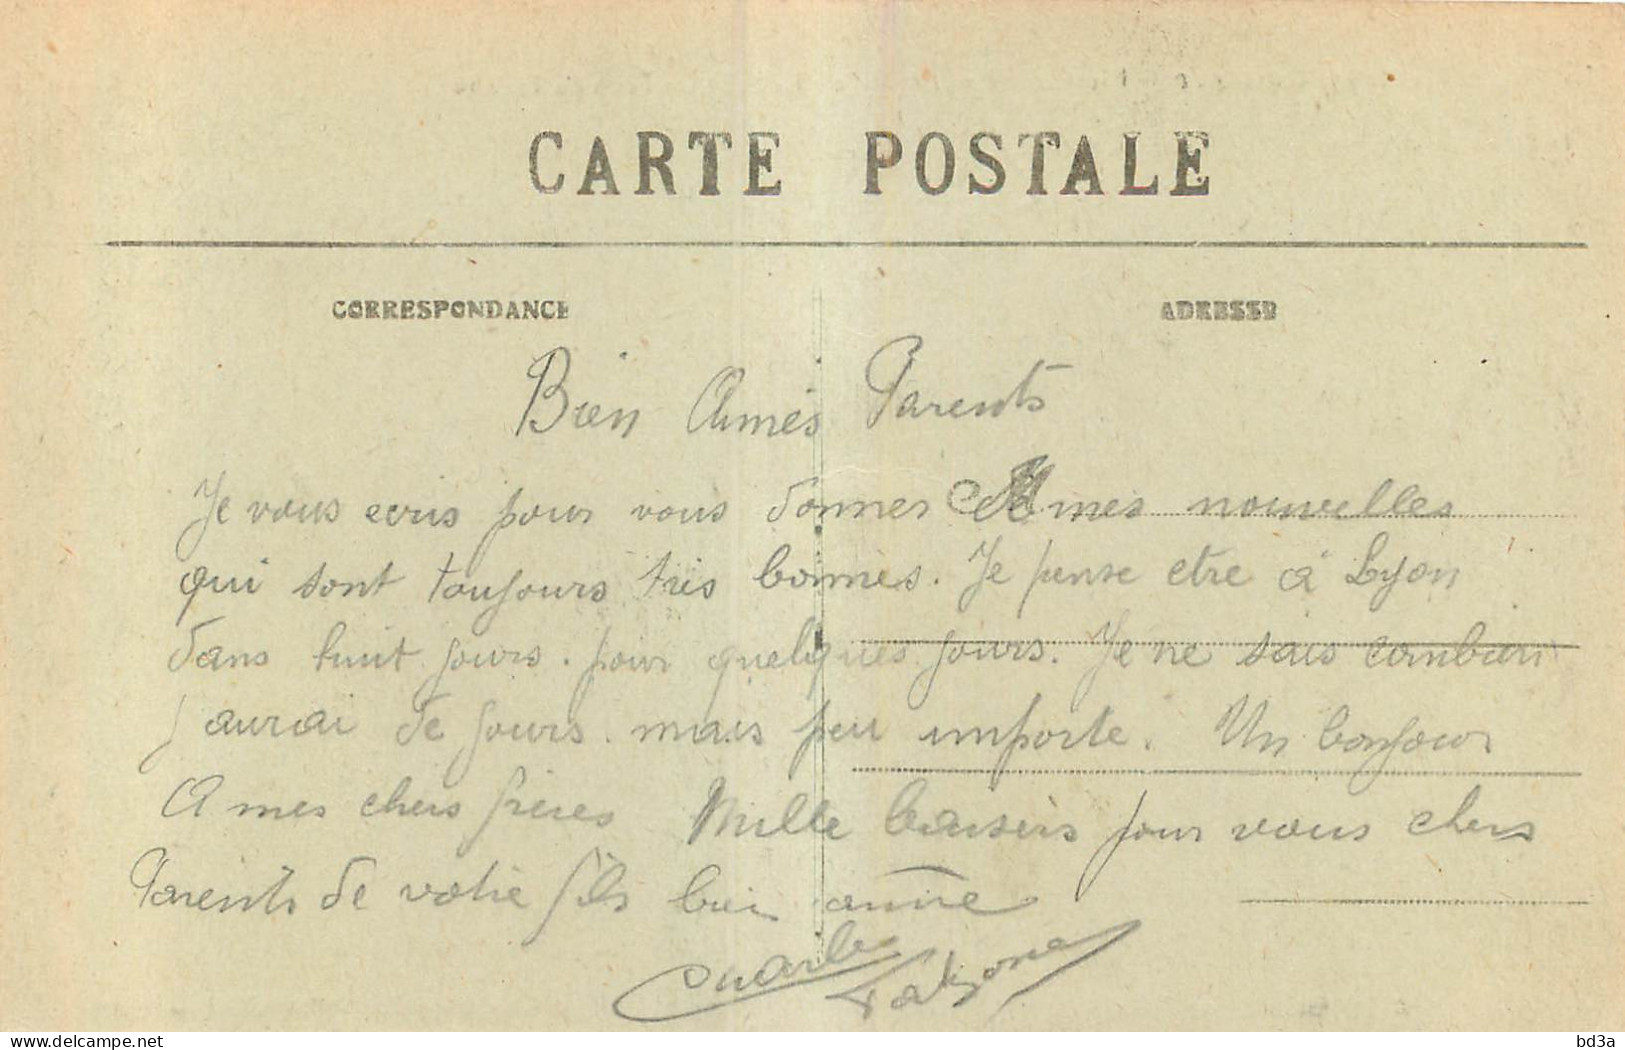 CARTE POSTALE
CORRESPONDANCE
ADRESSE
Bien Aimés Parents
Je vous ecris pour vous donner mes nouvelles
qui sont toujours très bonnes. Je pense etre à Lyon
dans huit jours. pour quelques jours. Je ne sais combien
j'aurai de jours. mais peu importe. Un bonjour
A mes chers frères Mille baisers pour vous chers
Parents de votre fils bien aimé
Charles
delcampe.net
bd3a